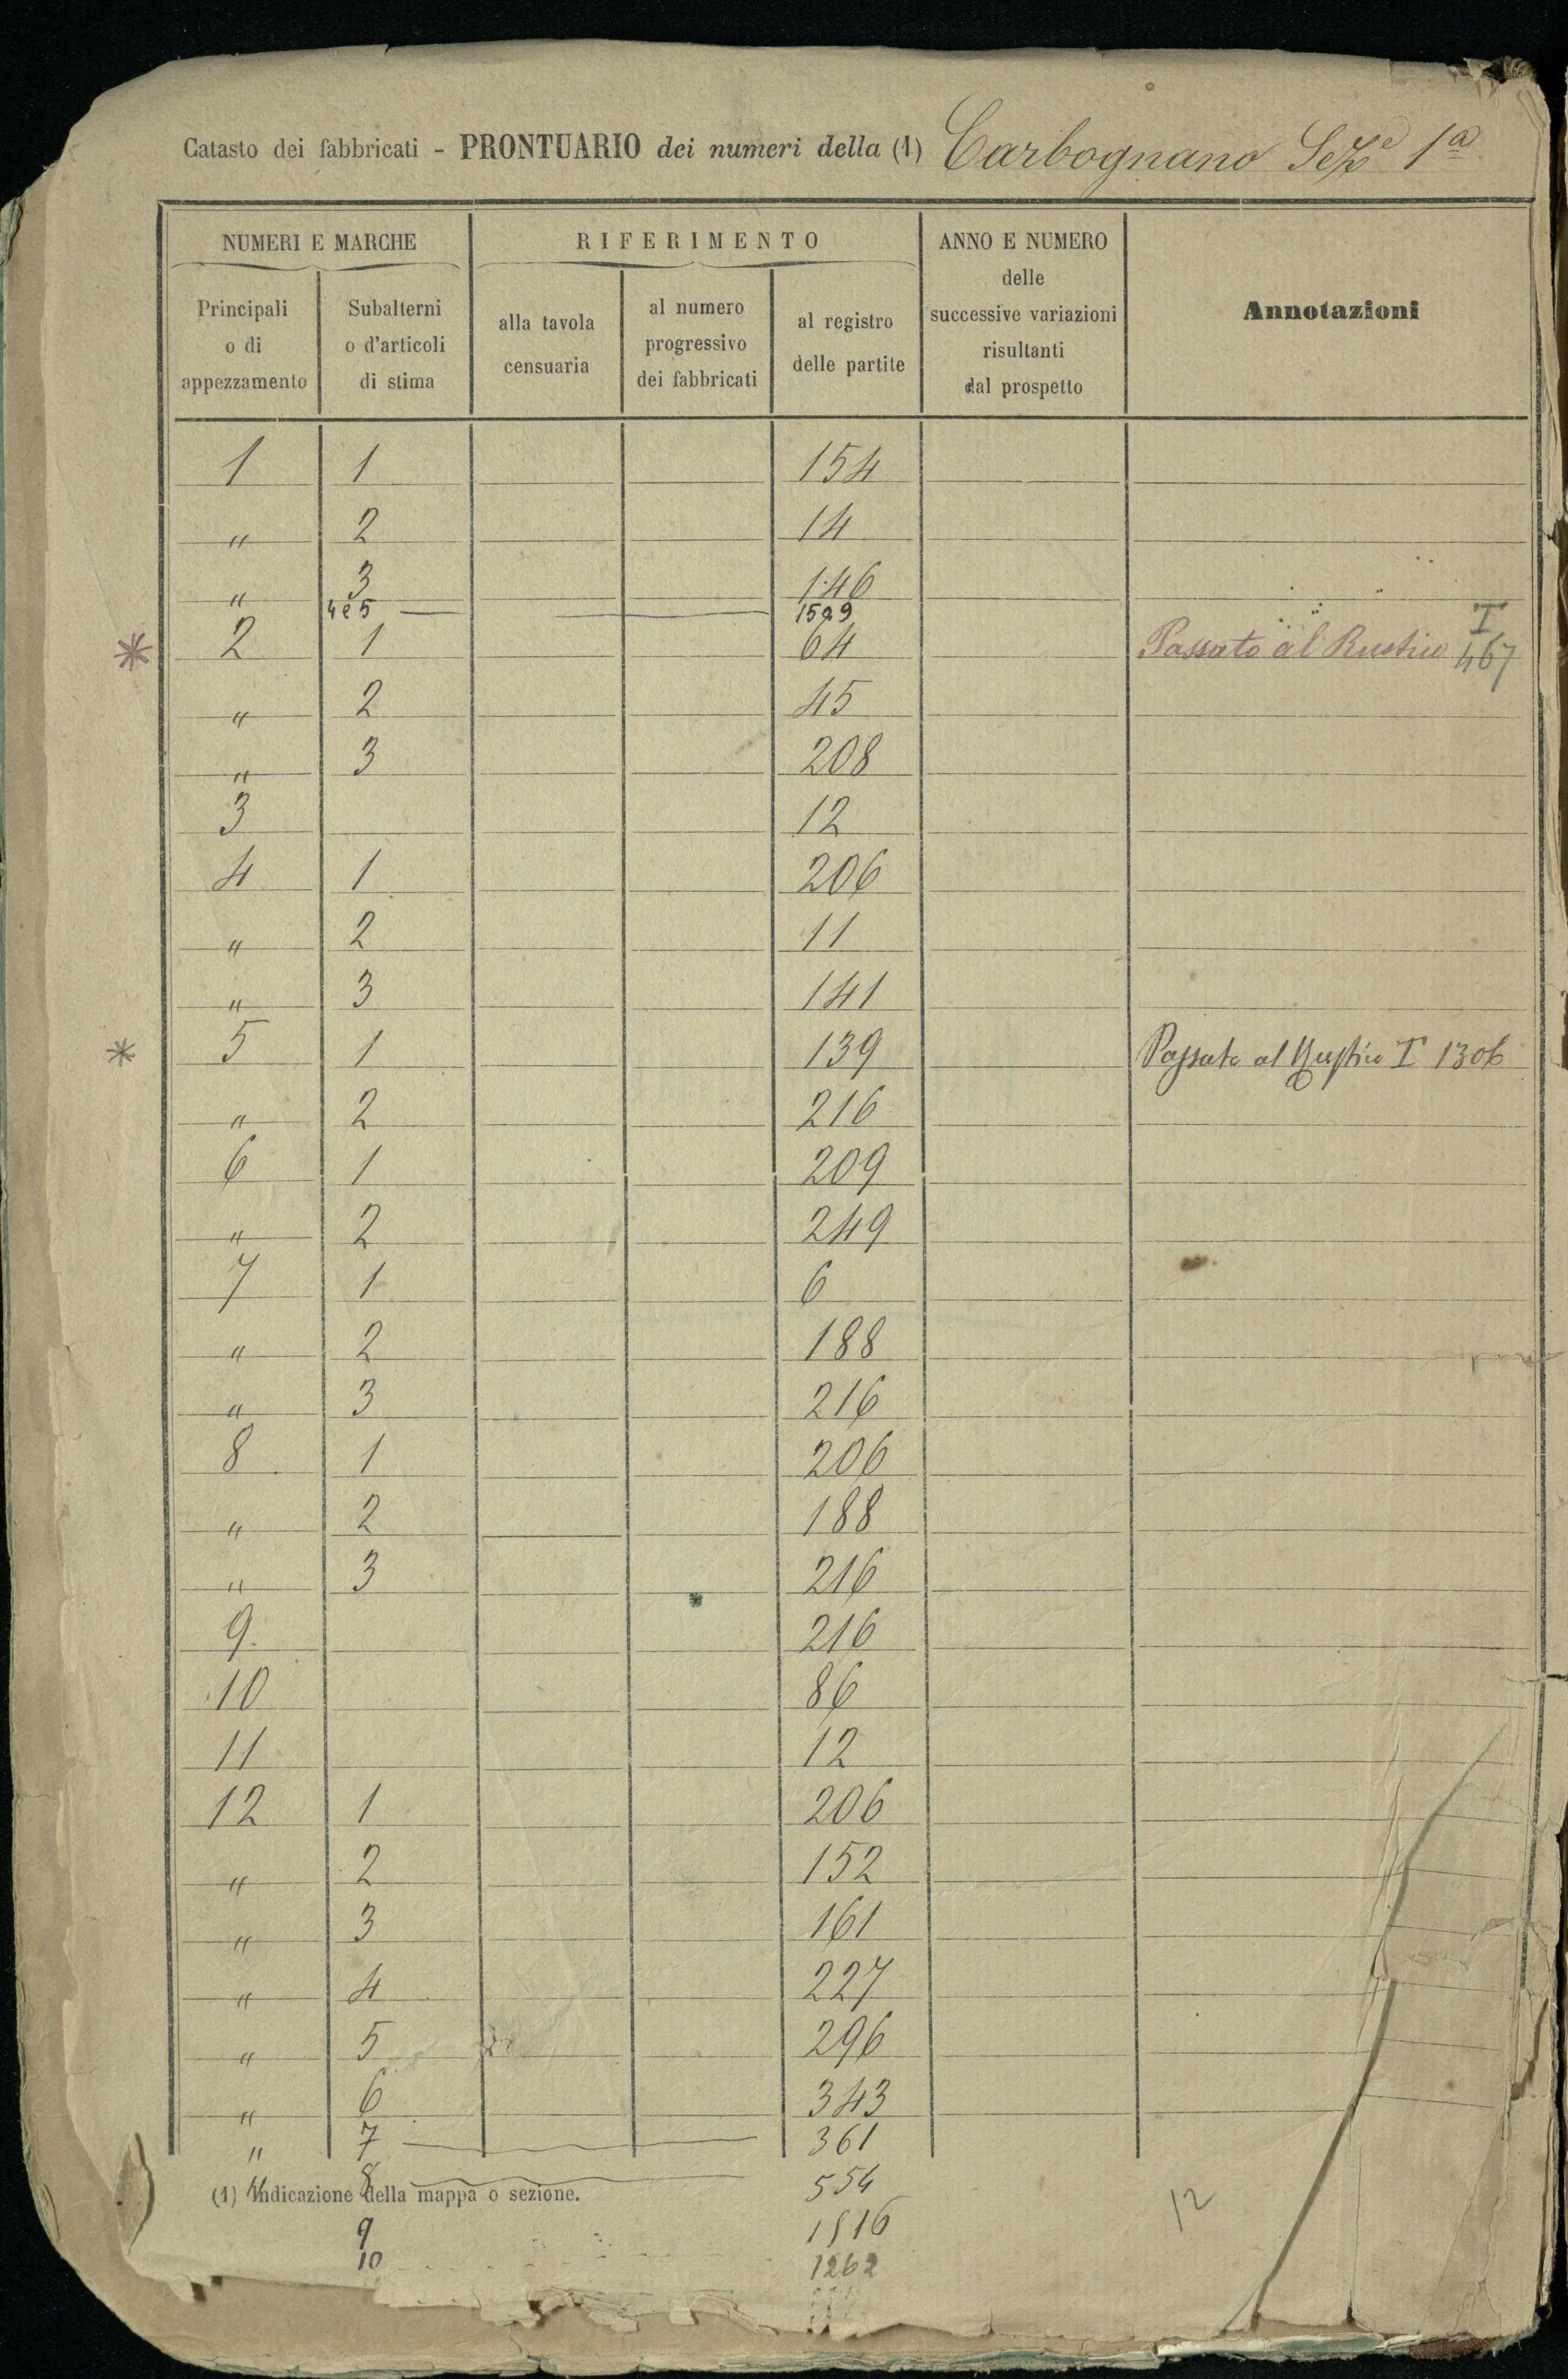 Catasto dei fabbricati - PRONTUARIO dei numeri della (1) Carbognano Seze 1a
NUMERI E MARCHE
RIFERIMENTO
ANNO E NUMERO
delle
successive variazioni
risultanti
dal prospetto
Annotazioni
Principali
o di
appezzamento
Subalterni
o d'articoli
di stima
alla tavola
censuaria
al numero
progressivo
dei fabbricati
al registro
delle partite
1 1 154
" 2 14
" 3 146
4 e 5 1529
* 2 1 64 Passato al Rustico I 467
" 2 45
" 3 208
3 12
4 1 206
" 2 11
" 3 141
* 5 1 139 Passato al Rustico I 1306
" 2 216
6 1 209
" 2 249
7 1 6
" 2 188
" 3 216
8 1 206
" 2 188
" 3 216
*
9. 216
10 86
11 12
12 1 206
" 2 152
" 3 161
" 4 227
" 5 296
" 6 343
" 7 361
" 8 554
(1) Indicazione della mappa o sezione.
9
10 1262
12